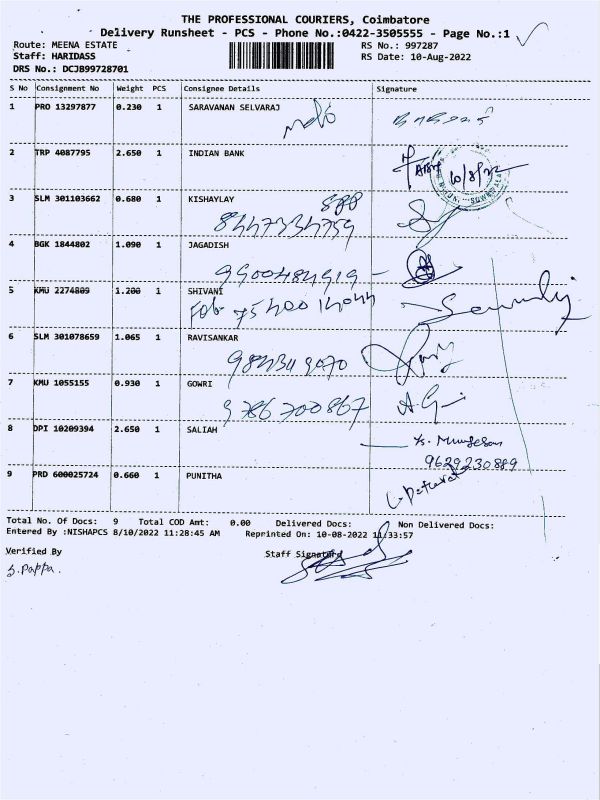 THE PROFESSIONAL COURIERS, Coimbatore
Delivery Runsheet - PCS - Phone No.:0422-3505555 - Page No.:1
Route: MEENA ESTATE
RS No.: 997287
Staff: HARIDASS
RS Date: 10-Aug-2022
DRS No.: DCJB99728701
S No Consignment No Weight PCS Consignee Details Signature
1 PRO 13297877 0.230 1 SARAVANAN SELVARAJ
2 TRP 4087795 2.650 1 INDIAN BANK
10/8/22
3 SLM 301103662 0.680 1 KISHAYLAY
8447334759
4 BGK 1844802 1.090 1 JAGADISH
9900484919
5 KMU 2274809 1.200 1 SHIVANI
6 SLM 301078659 1.065 1 RAVISANKAR
7 KMU 1055155 0.930 1 GOWRI
9786700867
8 DPI 10209394 2.650 1 SALIAH
9629230889
9 PRD 600025724 0.660 1 PUNITHA
Total No. Of Docs: 9 Total COD Amt: 0.00 Delivered Docs: Non Delivered Docs:
Entered By :NISHAPCS 8/10/2022 11:28:45 AM Reprinted On: 10-08-2022 11/33/57
Verified By Staff Signature
S.Pappa.